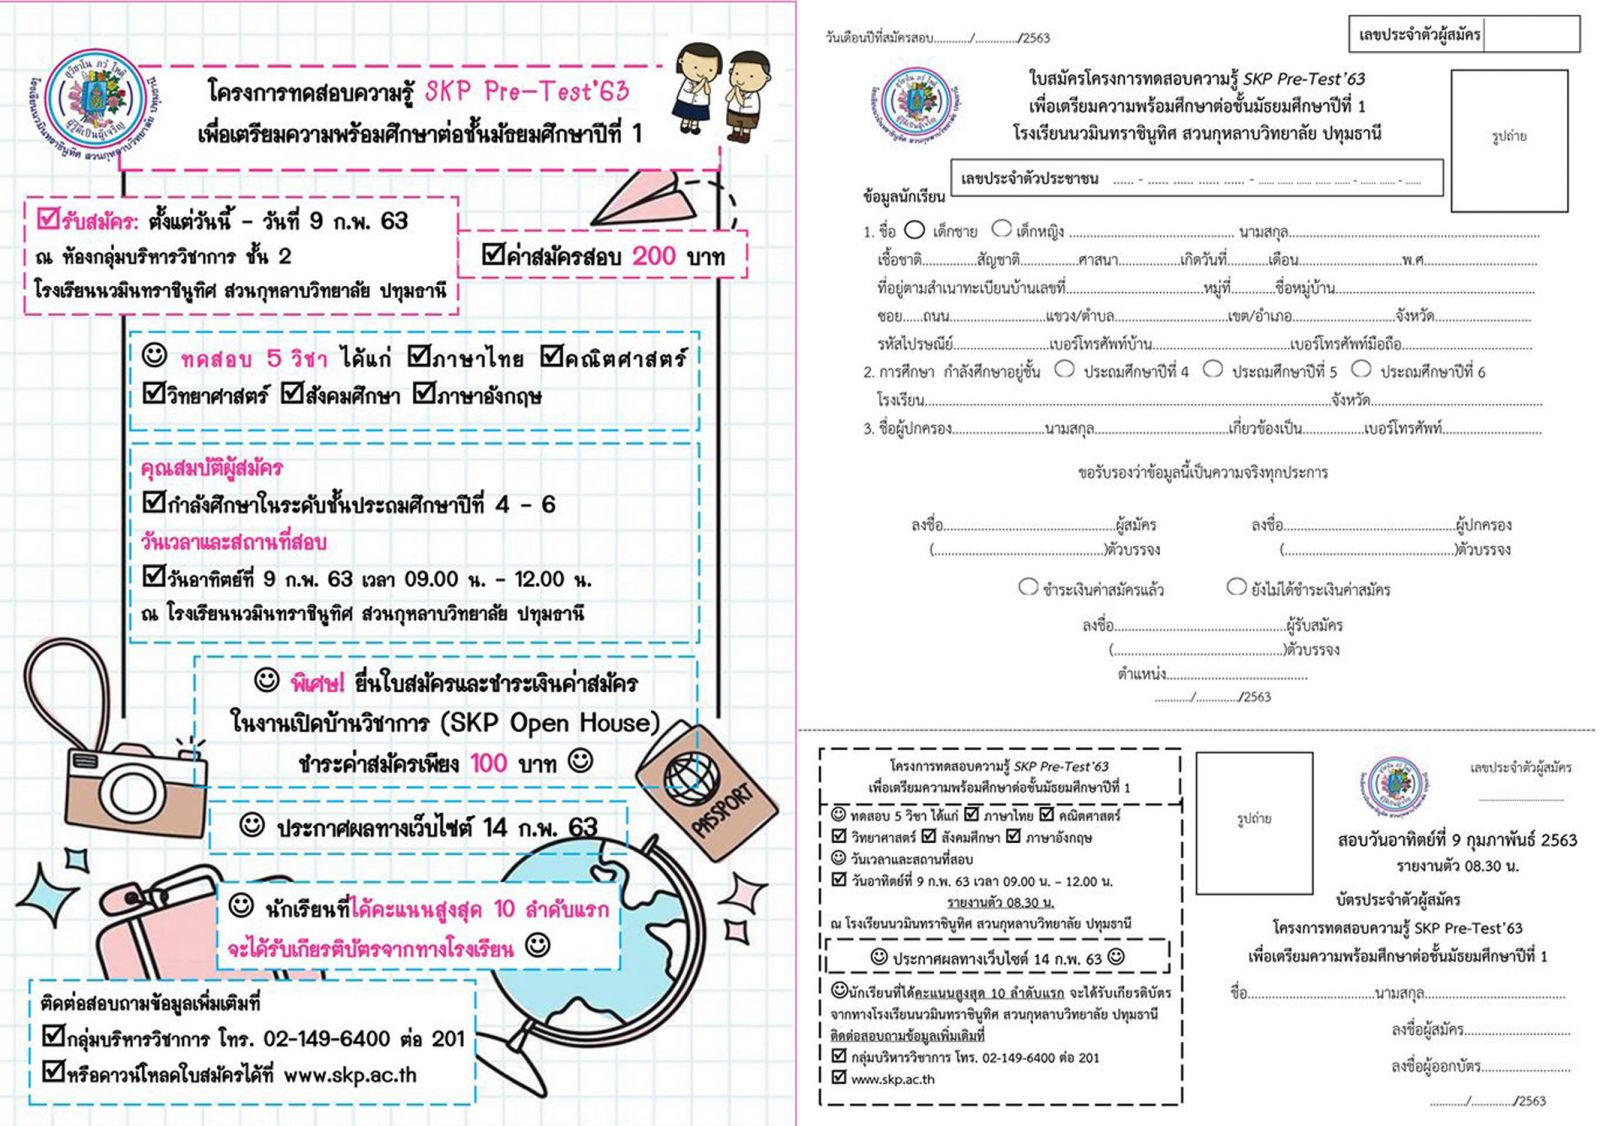 โครงการทดสอบความรู้ SKP Pre-Test'63
เพื่อเตรียมความพร้อมศึกษาต่อชั้นมัธยมศึกษาปีที่ 1
สุวิชาโน ภวํ โหติ
ผู้รู้ดีเป็นผู้เจริญ
โรงเรียนนวมินทราชินูทิศ สวนกุหลาบวิทยาลัย ปทุมธานี
☑รับสมัคร: ตั้งแต่วันนี้ - วันที่ 9 ก.พ. 63
ณ ห้องกลุ่มบริหารวิชาการ ชั้น 2
โรงเรียนนวมินทราชินูทิศ สวนกุหลาบวิทยาลัย ปทุมธานี
☑ค่าสมัครสอบ 200 บาท
☺ ทดสอบ 5 วิชา ได้แก่ ☑ภาษาไทย ☑คณิตศาสตร์
☑วิทยาศาสตร์ ☑สังคมศึกษา ☑ภาษาอังกฤษ
คุณสมบัติผู้สมัคร
☑กำลังศึกษาในระดับชั้นประถมศึกษาปีที่ 4 - 6
วันเวลาและสถานที่สอบ
☑วันอาทิตย์ที่ 9 ก.พ. 63 เวลา 09.00 น. - 12.00 น.
ณ โรงเรียนนวมินทราชินูทิศ สวนกุหลาบวิทยาลัย ปทุมธานี
☺ พิเศษ! ยื่นใบสมัครและชำระเงินค่าสมัคร
ในงานเปิดบ้านวิชาการ (SKP Open House)
ชำระค่าสมัครเพียง 100 บาท ☺
PASSPORT
☺ ประกาศผลทางเว็บไซต์ 14 ก.พ. 63
☺ นักเรียนที่ได้คะแนนสูงสุด 10 ลำดับแรก
จะได้รับเกียรติบัตรจากทางโรงเรียน ☺
ติดต่อสอบถามข้อมูลเพิ่มเติมที่
☑กลุ่มบริหารวิชาการ โทร. 02-149-6400 ต่อ 201
☑หรือดาวน์โหลดใบสมัครได้ที่ www.skp.ac.th
วันเดือนปีที่สมัครสอบ............/............../2563
เลขประจำตัวผู้สมัคร
ใบสมัครโครงการทดสอบความรู้ SKP Pre-Test'63
เพื่อเตรียมความพร้อมศึกษาต่อชั้นมัธยมศึกษาปีที่ 1
โรงเรียนนวมินทราชินูทิศ สวนกุหลาบวิทยาลัย ปทุมธานี
รูปถ่าย
เลขประจำตัวประชาชน ...... - ...... ...... ...... ...... - ...... ...... ...... ...... ...... - ...... ...... - ......
ข้อมูลนักเรียน
1. ชื่อ ○ เด็กชาย ○ เด็กหญิง .......................................... นามสกุล................................................................
เชื้อชาติ..............สัญชาติ...............ศาสนา................เกิดวันที่...........เดือน..........................พ.ศ.............................
ที่อยู่ตามสำเนาทะเบียนบ้านเลขที่...................................หมู่ที่...........ชื่อหมู่บ้าน...................................................
ซอย......ถนน.........................แขวง/ตำบล.............................เขต/อำเภอ..........................จังหวัด.........................
รหัสไปรษณีย์.........................เบอร์โทรศัพท์บ้าน...................................เบอร์โทรศัพท์มือถือ.................................
2. การศึกษา กำลังศึกษาอยู่ชั้น ○ ประถมศึกษาปีที่ 4 ○ ประถมศึกษาปีที่ 5 ○ ประถมศึกษาปีที่ 6
โรงเรียน.......................................................................................................จังหวัด............................................
3. ชื่อผู้ปกครอง...............................นามสกุล..................................เกี่ยวข้องเป็น................เบอร์โทรศัพท์.........................
ขอรับรองว่าข้อมูลนี้เป็นความจริงทุกประการ
ลงชื่อ............................................ผู้สมัคร ลงชื่อ............................................ผู้ปกครอง
(............................................)ตัวบรรจง (............................................)ตัวบรรจง
○ ชำระเงินค่าสมัครแล้ว ○ ยังไม่ได้ชำระเงินค่าสมัคร
ลงชื่อ............................................ผู้รับสมัคร
(............................................)ตัวบรรจง
ตำแหน่ง....................................
........../............./2563
โครงการทดสอบความรู้ SKP Pre-Test'63
เพื่อเตรียมความพร้อมศึกษาต่อชั้นมัธยมศึกษาปีที่ 1
☺ ทดสอบ 5 วิชา ได้แก่ ☑ ภาษาไทย ☑ คณิตศาสตร์
☑ วิทยาศาสตร์ ☑ สังคมศึกษา ☑ ภาษาอังกฤษ
☺ วันเวลาและสถานที่สอบ
☑ วันอาทิตย์ที่ 9 ก.พ. 63 เวลา 09.00 น. - 12.00 น.
รายงานตัว 08.30 น.
ณ โรงเรียนนวมินทราชินูทิศ สวนกุหลาบวิทยาลัย ปทุมธานี
☺ ประกาศผลทางเว็บไซต์ 14 ก.พ. 63 ☺
☺นักเรียนที่ได้คะแนนสูงสุด 10 ลำดับแรก จะได้รับเกียรติบัตร
จากทางโรงเรียนนวมินทราชินูทิศ สวนกุหลาบวิทยาลัย ปทุมธานี
ติดต่อสอบถามข้อมูลเพิ่มเติมที่
☑ กลุ่มบริหารวิชาการ โทร. 02-149-6400 ต่อ 201
☑ www.skp.ac.th
รูปถ่าย
เลขประจำตัวผู้สมัคร
..........................
สอบวันอาทิตย์ที่ 9 กุมภาพันธ์ 2563
รายงานตัว 08.30 น.
บัตรประจำตัวผู้สมัคร
โครงการทดสอบความรู้ SKP Pre-Test'63
เพื่อเตรียมความพร้อมศึกษาต่อชั้นมัธยมศึกษาปีที่ 1
ชื่อ.................................นามสกุล....................................
ลงชื่อผู้สมัคร...........................
ลงชื่อผู้ออกบัตร.......................
........../............/2563